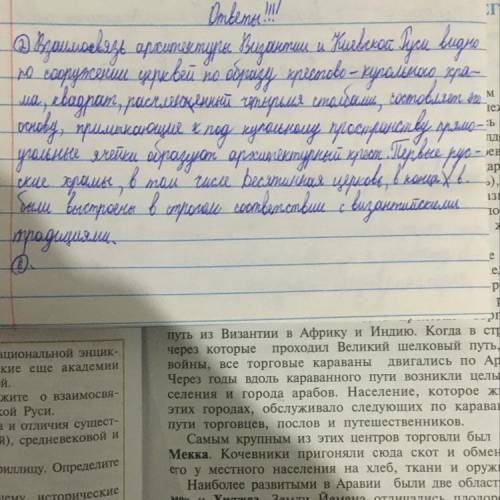 Ответы!!!!
2) Взаимосвязь архитектуры Византии и Киевской Руси видно
по сооружении церквей по образу крестово-купольного хра-
ма, квадрат, расчленённый четырьмя столбами, составляет его
основу, примыкающие к под купольному пространству прямо-
угольные ячейки образуют архитектурный крест. Первые рус-
ские храмы, в том числе Десятинная церковь, в конце X в.
были выстроены в строгом соответствии с византийскими
традициями.
путь из Византии в Африку и Индию. Когда в стр
через которые проходил Великий шелковый путь,
войны, все торговые караваны двигались по Ар
Через годы вдоль караванного пути возникли целы
селения и города арабов. Население, которое жи
этих городах, обслуживало следующих по карава
пути торговцев, послов и путешественников.
Самым крупным из этих центров торговли был
Мекка. Кочевники пригоняли сюда скот и обмен
его у местного населения на хлеб, ткани и оруж
Наиболее развитыми в Аравии были две област
ациональной энцик-
ские еще академии
ей.
жите о взаимосвя-
кой Руси.
а и отличия сущест-
й), средневековой и
риллицу. Определите
чему исторические